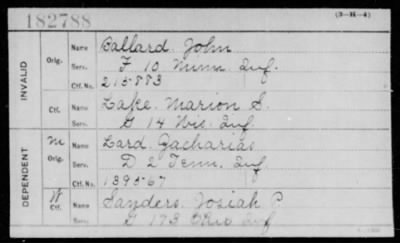 182788 (3-H-4)
INVALID
Orig. Name Ballard. John
Serv. F 10 Minn. Inf.
Ctf. No. 215883
Ctf. Name Lake. Marion S.
Serv. G 14 Wis. Inf.
DEPENDENT
M Orig. Name Lard. Zacharias
Serv. D 2 Tenn. Inf
Ctf. No. 189567
W Ctf. Name Sanders. Josiah P.
Serv. 173 Ohio Inf